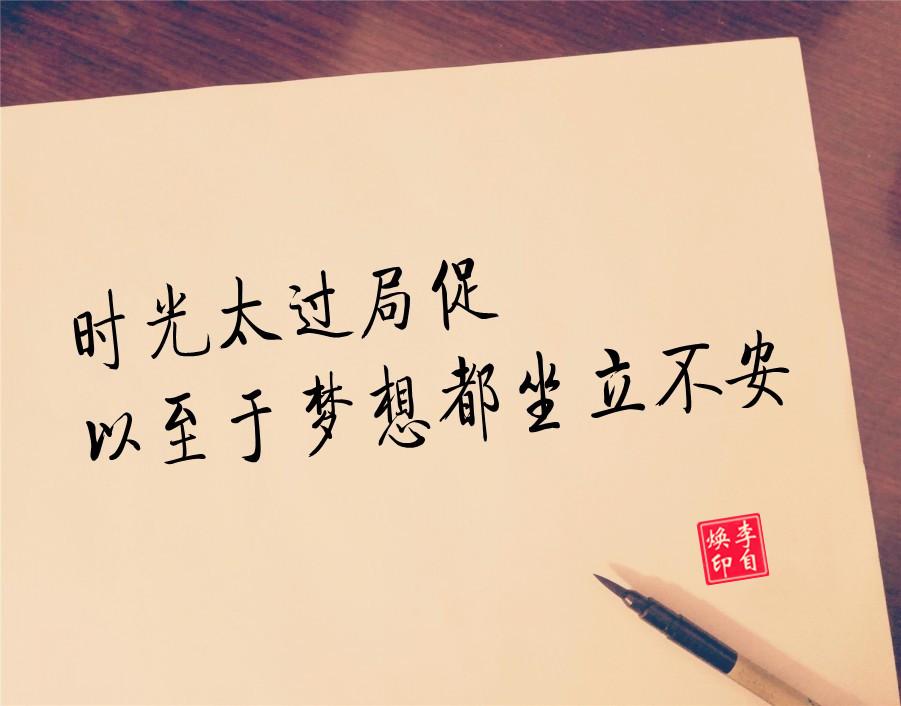 时光太过局促
以至于梦想都坐立不安
李自
焕印